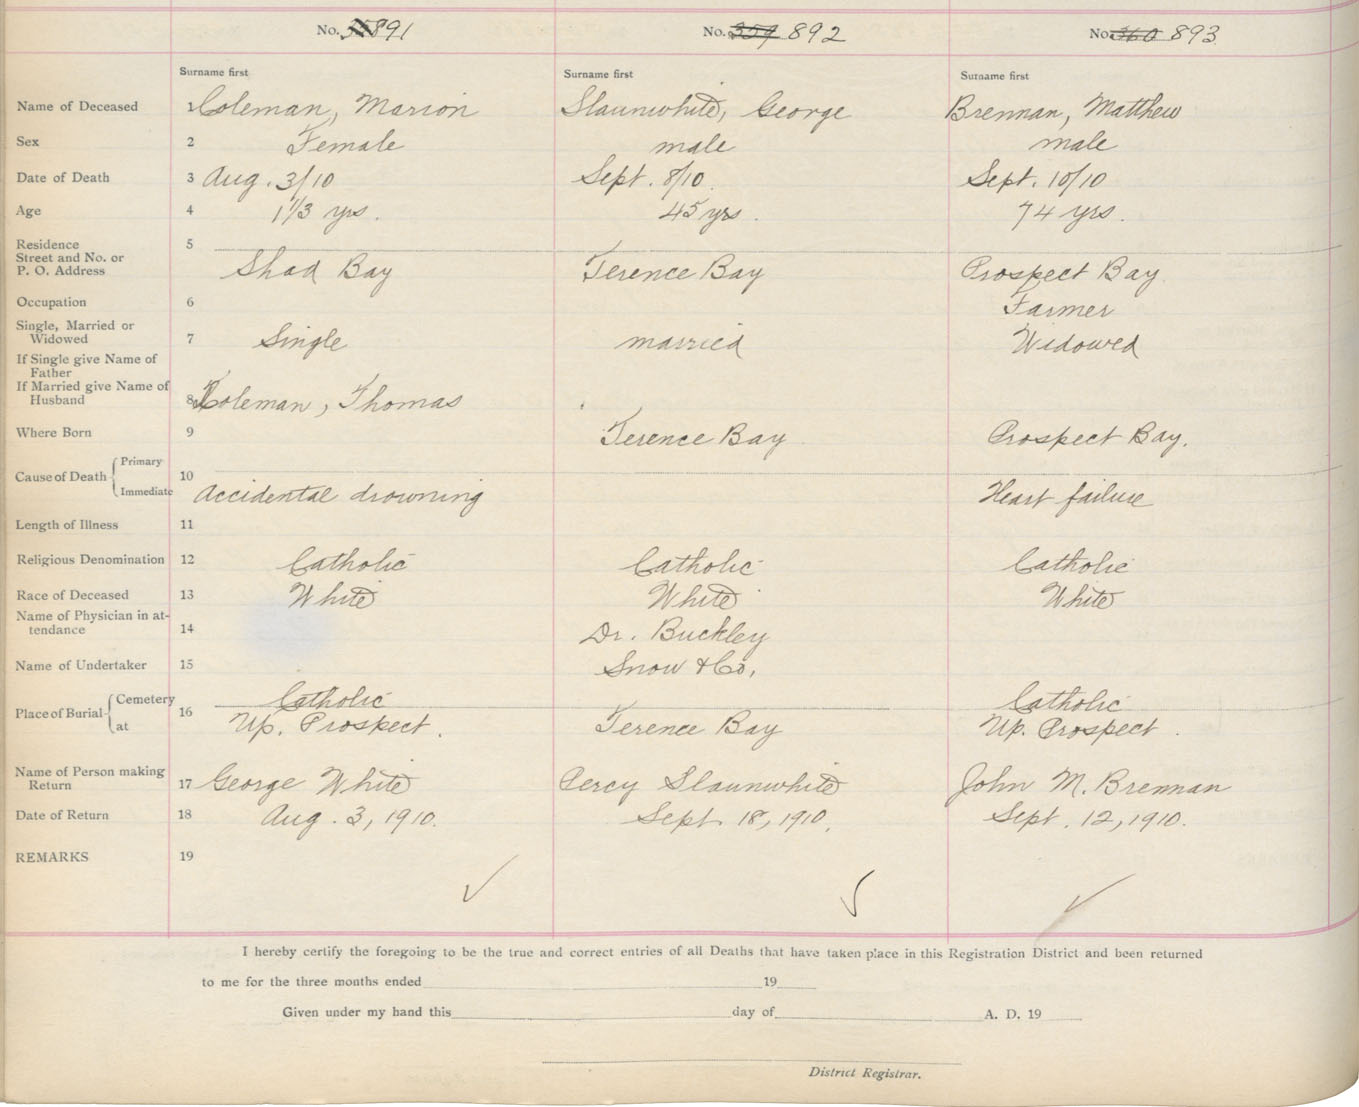 No. 891 No. 359 892 No. 360 893
Surname first Surname first Surname first
Name of Deceased 1 Coleman, Marion Slaunwhite, George Brennan, Matthew
Sex 2 Female male male
Date of Death 3 Aug. 3/10 Sept. 8/10 Sept. 10/10
Age 4 1 1/3 yrs. 45 yrs. 74 yrs.
Residence 5
Street and No. or
P. O. Address Shad Bay Terence Bay Prospect Bay.
Occupation 6 Farmer
Single, Married or
Widowed 7 Single married Widowed
If Single give Name of
Father
If Married give Name of
Husband 8 Coleman, Thomas
Where Born 9 Terence Bay Prospect Bay.
Primary
Cause of Death 10
Immediate Accidental drowning Heart failure
Length of Illness 11
Religious Denomination 12 Catholic Catholic Catholic
Race of Deceased 13 White White White
Name of Physician in at-
tendance 14 Dr. Buckley
Name of Undertaker 15 Snow & Co.,
Cemetery Catholic Catholic
Place of Burial 16
at Up. Prospect. Terence Bay Up. Prospect.
Name of Person making
Return 17 George White Percy Slaunwhite John M. Brennan
Date of Return 18 Aug. 3, 1910. Sept. 18, 1910. Sept. 12, 1910.
REMARKS 19
I hereby certify the foregoing to be the true and correct entries of all Deaths that have taken place in this Registration District and been returned
to me for the three months ended 19
Given under my hand this day of A. D. 19
District Registrar.